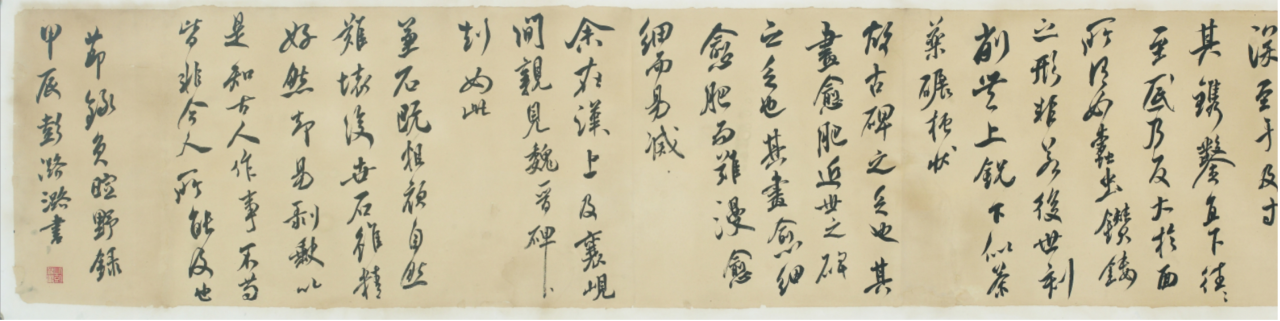 深至于及寸
其鐫鑿直下往〻
至底乃反大於面
所謂如蠹虫鑽鏤
之形非若後世刻
削豐上銳下似茶
藥碾槽狀
故古碑之乏也其
畫愈肥近世之碑
之乏也其畫愈細
愈肥而難漫愈
細而易滅
余在漢上及襄峴
間親見魏晉碑
刻如此
兼石既粗頑自然
難壞後世石雖精
好然却易剝缺以
是知古人作事不苟
皆非今人所能及也
節錄負暄野錄
甲辰彭潞潞書